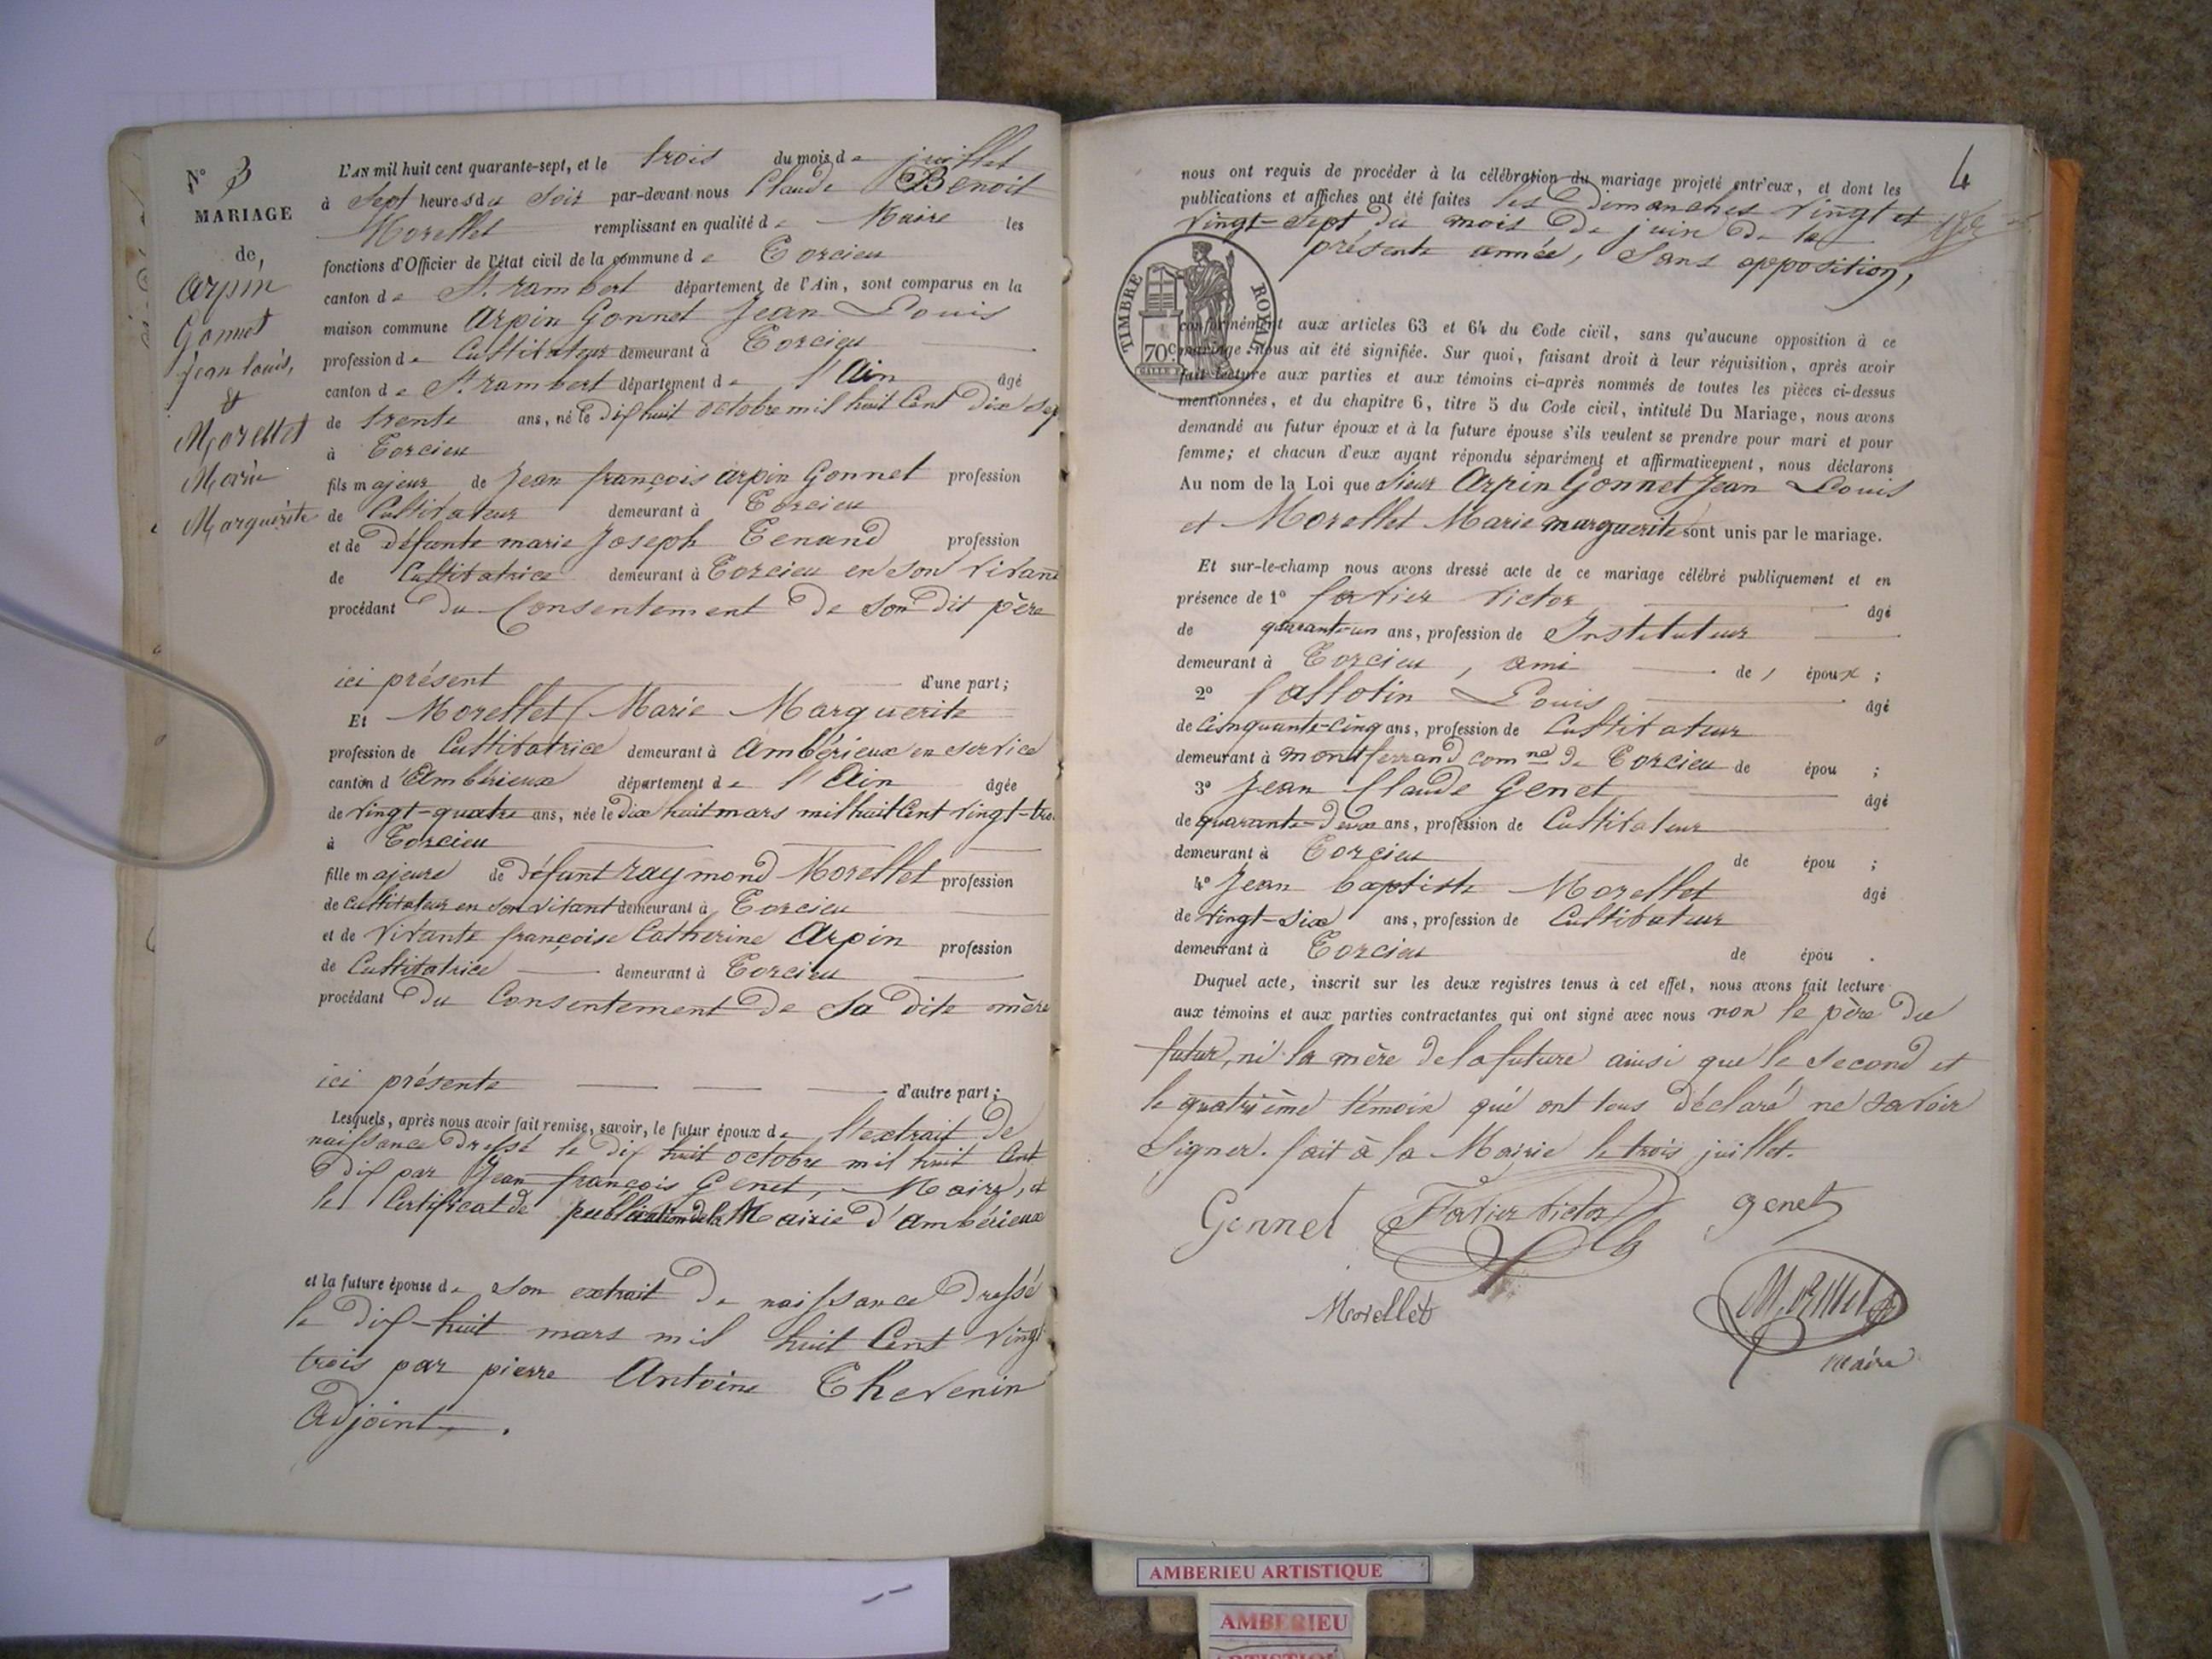 N° 3
MARIAGE
de
Arpin
Gonnet
jean louis,
&
Morellet
Marie
Marguerite
L'AN mil huit cent quarante-sept, et le trois du mois de juillet
à Sept heures du Soir par-devant nous Claude Benoit
Morellet remplissant en qualité de Maire les
fonctions d'Officier de l'état civil de la commune de Torcieu
canton de St. rambert département de l'Ain, sont comparus en la
maison commune Arpin Gonnet Jean Louis
profession de Cultivateur demeurant à Torcieu
canton de St. rambert département de l'Ain âgé
de trente ans, né le dix huit octobre mil huit Cent dix sep
à Torcieu
fils majeur de Jean françois arpin Gonnet profession
de Cultivateur demeurant à Torcieu
et de défunte marie Joseph Tenand profession
de Cultivatrice demeurant à Torcieu en son vivant
procédant du Consentement de son dit père
ici présent d'une part;
Et Morellet Marie Marguerite
profession de Cultivatrice demeurant à ambérieux en service
canton d'Ambérieux département de l'Ain âgée
de vingt-quatre ans, née le dix huit mars mil huit Cent vingt-tro
à Torcieu
fille majeure de défunt raymond Morellet profession
de cultivateur en son vivant demeurant à Torcieu
et de vivante françoise Catherine Arpin profession
de Cultivatrice demeurant à Torcieu
procédant du Consentement de Sa dite mère
ici présente d'autre part;
Lesquels, après nous avoir fait remise, savoir, le futur époux de l'extrait de
naissance dressé le dix huit octobre mil huit Cent
dix par Jean françois Genet, Maire, et
le Certificat de publication de la Mairie d'ambérieux
et la future épouse de son extrait de naissance dressé
le dix-huit mars mil huit Cent vingt
trois par pierre Antoine Thevenin
adjoint.
4
nous ont requis de procéder à la célébration du mariage projeté entr'eux, et dont les
publications et affiches ont été faites les Dimanches vingt et
vingt-sept du mois de juin de la
présente année, Sans opposition,
TIMBRE ROYAL
70c
conformément aux articles 63 et 64 du Code civil, sans qu'aucune opposition à ce
mariage nous ait été signifiée. Sur quoi, faisant droit à leur réquisition, après avoir
fait lecture aux parties et aux témoins ci-après nommés de toutes les pièces ci-dessus
mentionnées, et du chapitre 6, titre 5 du Code civil, intitulé Du Mariage, nous avons
demandé au futur époux et à la future épouse s'ils veulent se prendre pour mari et pour
femme; et chacun d'eux ayant répondu séparément et affirmativement, nous déclarons
Au nom de la Loi que Sieur Arpin Gonnet Jean Louis
et Morellet Marie marguerite sont unis par le mariage.
Et sur-le-champ nous avons dressé acte de ce mariage célébré publiquement et en
présence de 1° fortier victor âgé
de quarante-un ans, profession de Instituteur
demeurant à Torcieu, ami de l époux;
2° Louis âgé
de Cinquante-cinq ans, profession de Cultivateur
demeurant à montferrand comne de Torcieu de épou ;
3° Jean Claude Genet âgé
de quarante-deux ans, profession de Cultivateur
demeurant à Torcieu de épou ;
4° Jean baptiste Morellet âgé
de vingt-six ans, profession de Cultivateur
demeurant à Torcieu de épou .
Duquel acte, inscrit sur les deux registres tenus à cet effet, nous avons fait lecture
aux témoins et aux parties contractantes qui ont signé avec nous non le père du
futur, ni la mère de la future ainsi que le second et
le quatrième témoin qui ont tous déclaré ne savoir
Signer. fait à la Mairie le trois juillet.
Gonnet Fortier Victor genet
Morellet Morellet
maire
AMBERIEU ARTISTIQUE
AMBERIEU
ARTISTIQUE